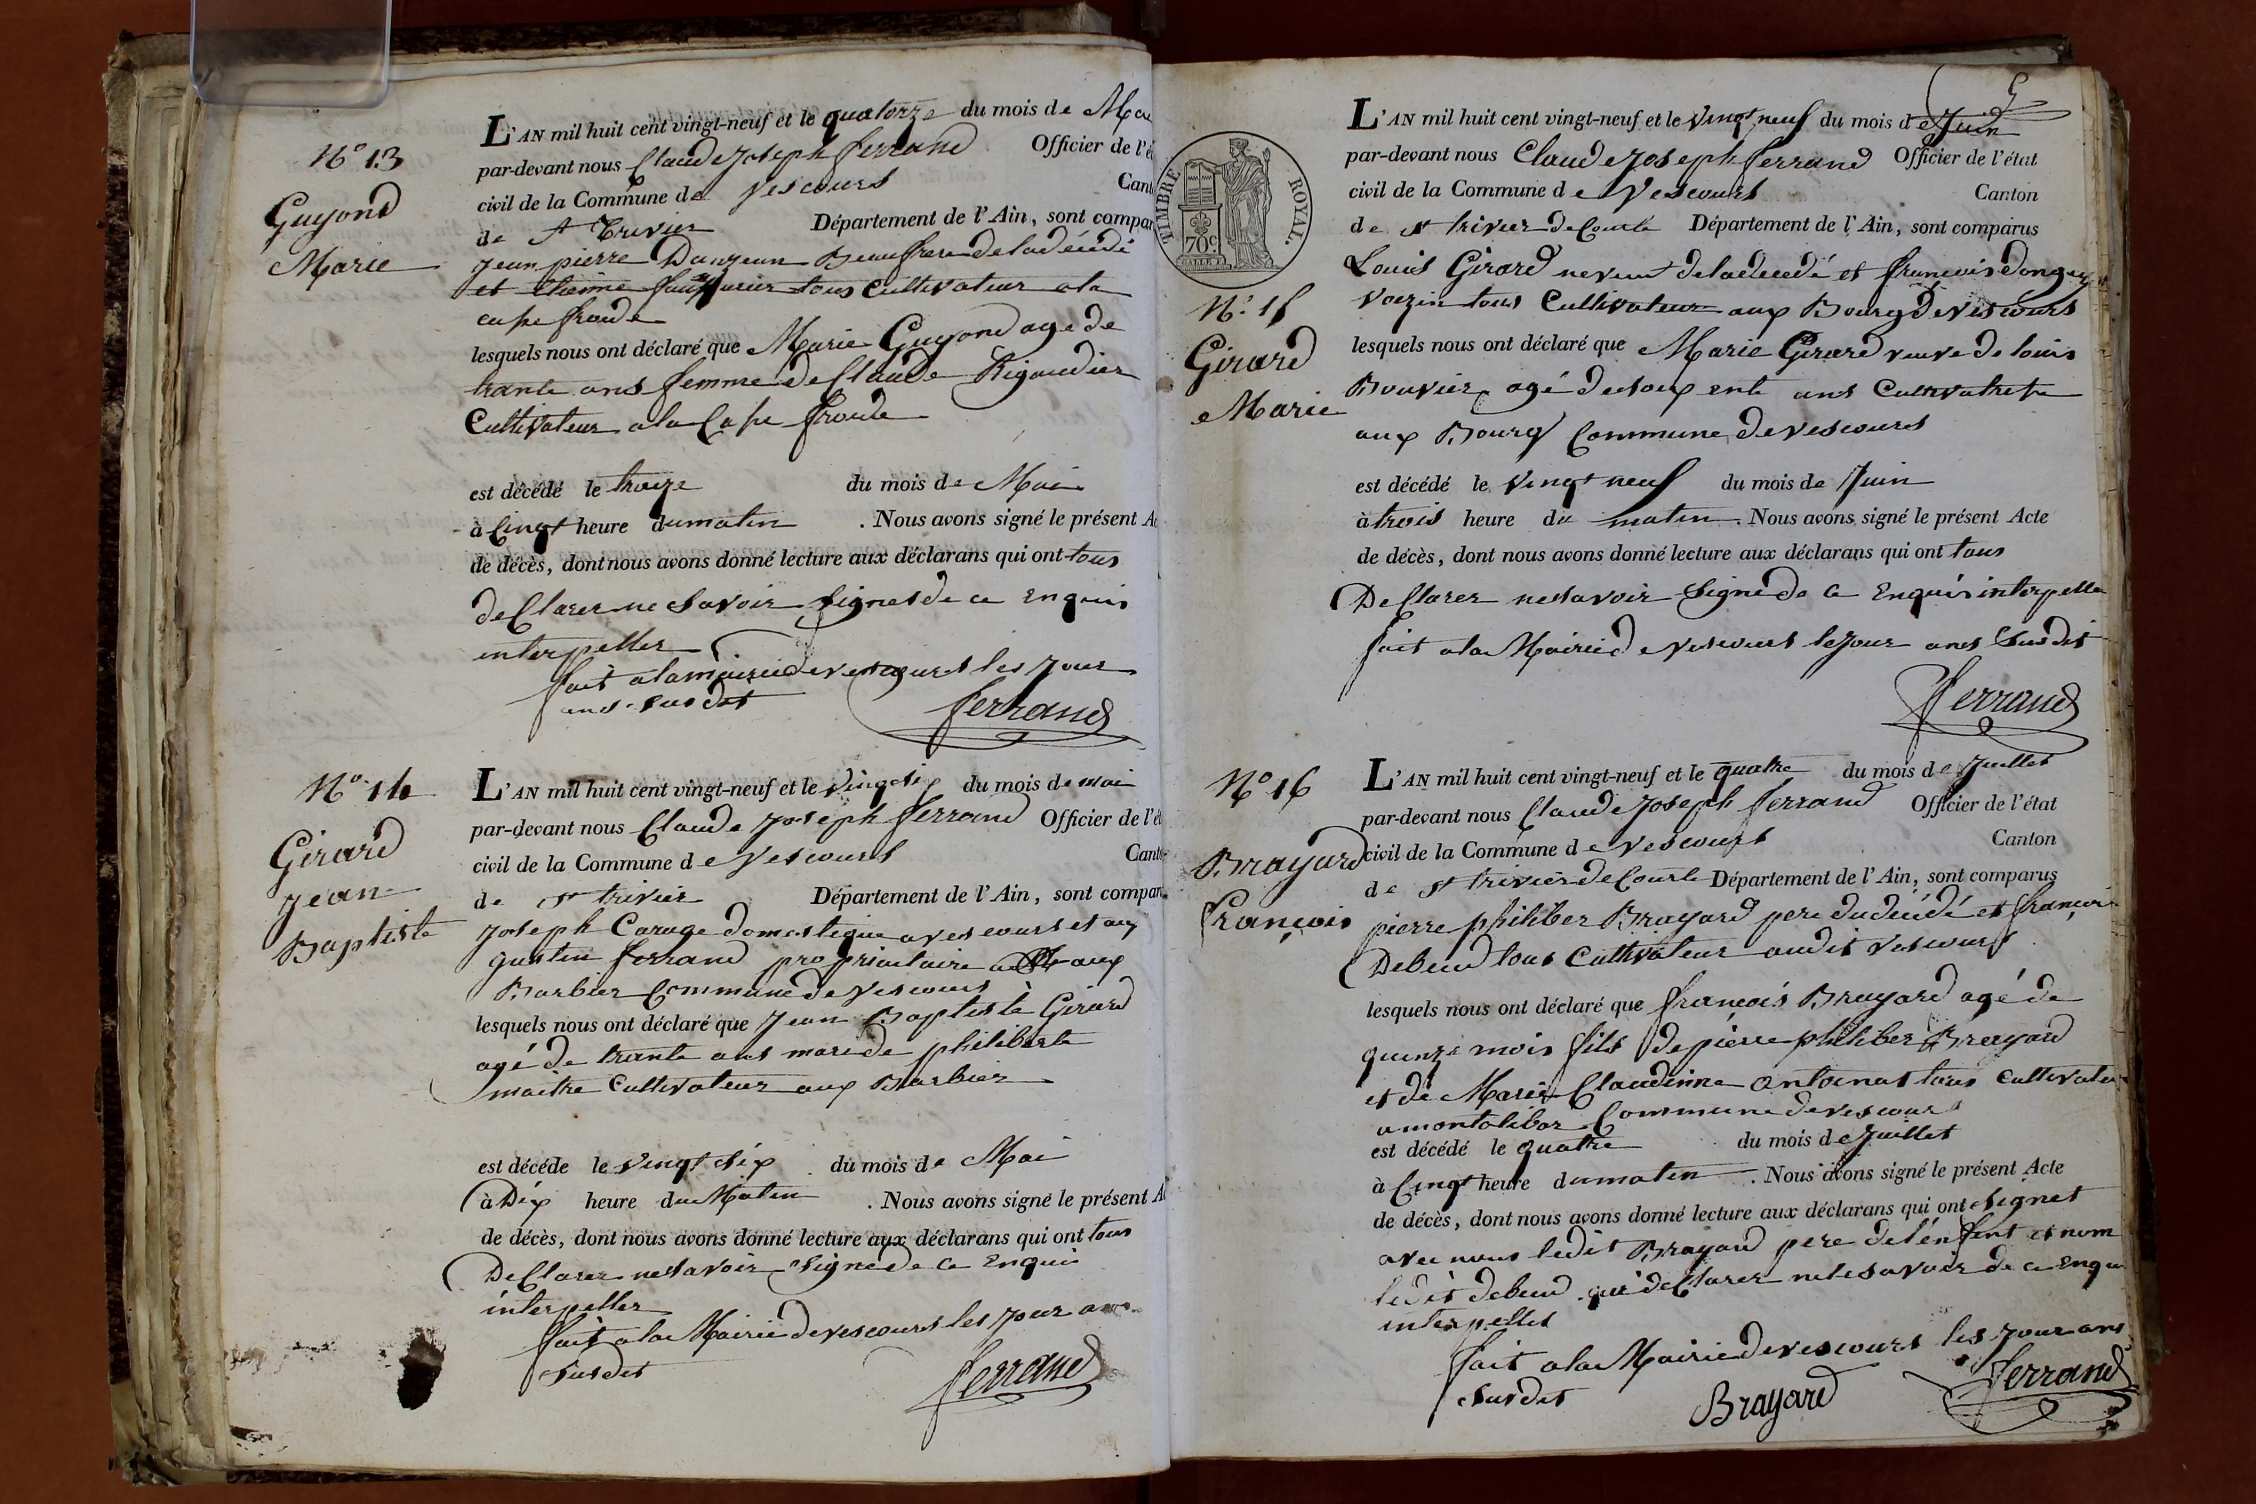 N° 13
Guyond
Marie
L'AN mil huit cent vingt-neuf et le quatorze du mois de Mai
par-devant nous Claude Joseph ferrand Officier de l'ét
civil de la Commune de vescours Cant
de St Trivier Département de l'Ain, sont compar
jean pierre Danjean Beaufrere de la décédé
et tous Cultivateur ala
case froide
lesquels nous ont déclaré que Marie Guyond age de
trante ans femme de Claude Rigaudier
Cultivateur ala Case froide
est décédé le traize du mois de Mai
à Cinqt heure du matin . Nous avons signé le présent A
de décès, dont nous avons donné lecture aux déclarans qui ont tous
deClarer ne Savoir signet de ce Enquis
interpeller
fait ala mairie de vescours les jour
ans susdit
ferrand
N° 14
Girard
jean
Baptiste
L'AN mil huit cent vingt-neuf et le vingt six du mois de mai
par-devant nous Claude joseph ferrand Officier de l'ét
civil de la Commune de vescours Canto
de St trivier Département de l'Ain, sont compar
joseph Carage domestique a vescours et au
gustin ferrand propriaitaire aux
Barbier Commune de vescours
lesquels nous ont déclaré que jean Baptiste Girard
agé de trante ans mari de philiberte
maitre Cultivateur aux Barbier
est décéde le vingt six du mois de Mai
à Dix heure du Matin . Nous avons signé le présent A
de décès, dont nous avons donné lecture aux déclarans qui ont tous
DeClarer ne Savoir signé de ce Enqui
interpeller
fait ala Mairie de vescours les jour ans
susdit
ferrand
5
TIMBRE ROYAL.
70c
L'AN mil huit cent vingt-neuf et le vingt neuf du mois de Juin
par-devant nous Claude joseph ferrand Officier de l'état
civil de la Commune de vescours Canton
de st trivier de Courte Département de l'Ain, sont comparus
N° 15
Girard
Marie
Louis Girard neveut de la decedé et francois
voizin tous Cultivateur aux Bourg de vescours
lesquels nous ont déclaré que Marie Girard veuve de louis
Bouvier agé de soixente ans Cultivatrisse
aux Bourg Commune de vescours
est décédé le vingt neuf du mois de juin
à trois heure du matin . Nous avons signé le présent Acte
de décès, dont nous avons donné lecture aux déclarans qui ont tous
DeClarer ne Savoir Signé de Ce Enquis interpelle
fait ala Mairie de vescours le jour ans Susdit
ferrand
N° 16
Brayard
françois
L'AN mil huit cent vingt-neuf et le quatre du mois de juillet
par-devant nous Claude joseph ferrand Officier de l'état
civil de la Commune de vescours Canton
de st trivier de Courte Département de l'Ain, sont comparus
pierre philiber Brayard pere du décédé et françois
Debeud tous Cultivateur audit vescours
lesquels nous ont déclaré que françois Brayard agé de
quinze mois fils de pierre philiber Brayard
et de Marie Claudinne antoinat tous cultivateu
a montaliber Commune de vescours
est décédé le quatre du mois de juillet
à Cinqt heure du matin . Nous avons signé le présent Acte
de décès, dont nous avons donné lecture aux déclarans qui ont signet
avec nous ledit Brayard pere de l'enfent et nom
ledit debeud qui deClarer ne le savoir de ce enqui
interpellet
fait ala Mairie de vescours les jour ans
susdit
Brayard
ferrand